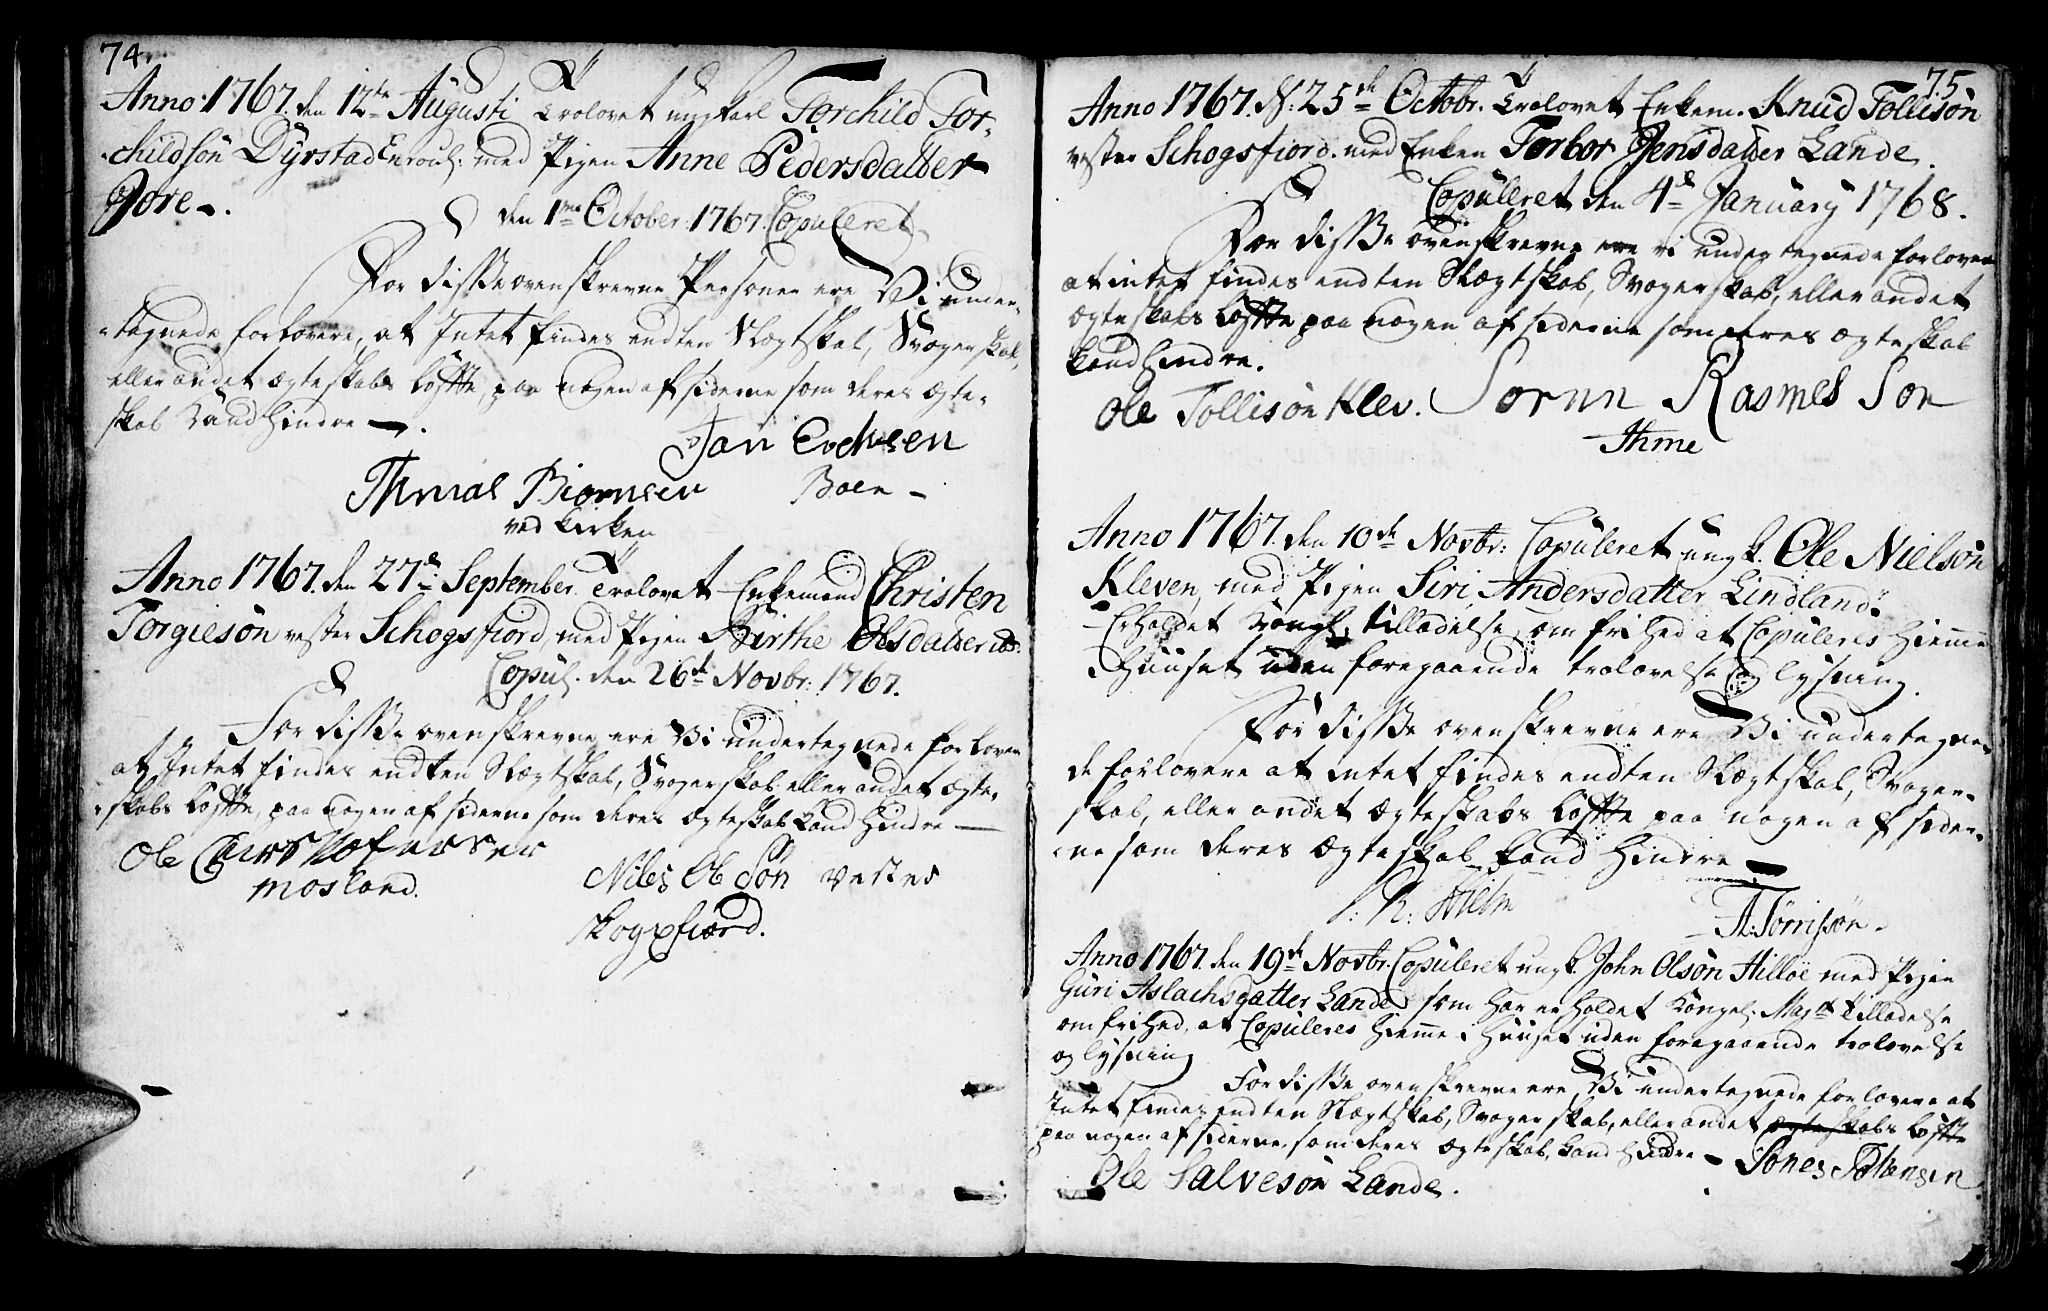 74.
Anno 1767. den 12te Augusti trolovet ungkarl Torchild Tor-
childsön Dÿrstad Enroul: med Pigen Anne Pedersdatter
Jore -.
den 1me October 1767. Copuleret
For disse ovenskrevne Personer ere Vi under-
tegnede forlovere, at Intet findes endten Slegtskab, Svogerskab,
eller andet ægteskabs Löffte, paa nogen af siderne som deres Ægte-
skab kand hindre -.
Jan Evensen
Boen -
Thmas Biörnsen
ved kirken
Anno 1767. den 27de September Trolovet Enkemand Christen
Torgiesön vester Schogsfiord, med Pigen Birthe Olsdatter ibd.
Copul. den 26de Novbr: 1767.
For disse ovenskrevne ere Vi undertegnede forlover
at Intet findes endten Slegtskab, Svogerskab eller andet ægte-
skabs Löffte, paa nogen af siderne som deres Ægteskab kand hindre -
Ole
mosland.
Niles Ole Sön vester
skogsfiord.
75
Anno 1767. d: 25de Octobr. Trolovet Enkem. Knud Tollisön
vester Schogsfiord. med Enken Torbor Jensdatter Lande.
Copuleret den 4de Januarÿ 1768.
For disse ovenskrevne ere vi undertegnede forlovere
at intet findes endten Slegtskab, Svogerskab, eller andet
ægteskabs Löffte paa nogen af siderne som deres ægteskab
kand hindre.
Ole Tollisön Klev. Sornn Rasmes Son
Ihme
Anno 1767. den 10de Novbr: Copuleret ungk. Ole Nielsön
Kleven, med Pigen Siri Andersdatter Lindland:
Erholdet Kongl. tilladelse om frihed at Copuleres hieme
i Huuset uden foregaaende trolovelse og lysning.
For disse ovenskrevne ere Vi undertegne-
de forlovere at intet findes endten Slegtskab, Svoger-
skab, eller andet Ægteskabs Löffte paa nogen af sider-
ne som deres Ægteskab kand hindre -
Hielm
T: Törrissön.
Anno 1767. den 19de Novbr. Copuleret ungk. John Olsön Hillöe med Pigen
Guri Aslachsdatter Lande, som har erholdet Kongel: Mayts Tilladelse
om frihed, at Copuleres hieme i Huuset uden foregaaende trolovelse
og lysning
For disse ovenskrevne ere Vi undertegnede forlovere at
Intet findes endten Slegtskab, Svogerskab, eller andet ægteskabs Löffte
paa nogen af siderne, som deres Ægteskab, kand hindre -
Ole Salvesön Lande.